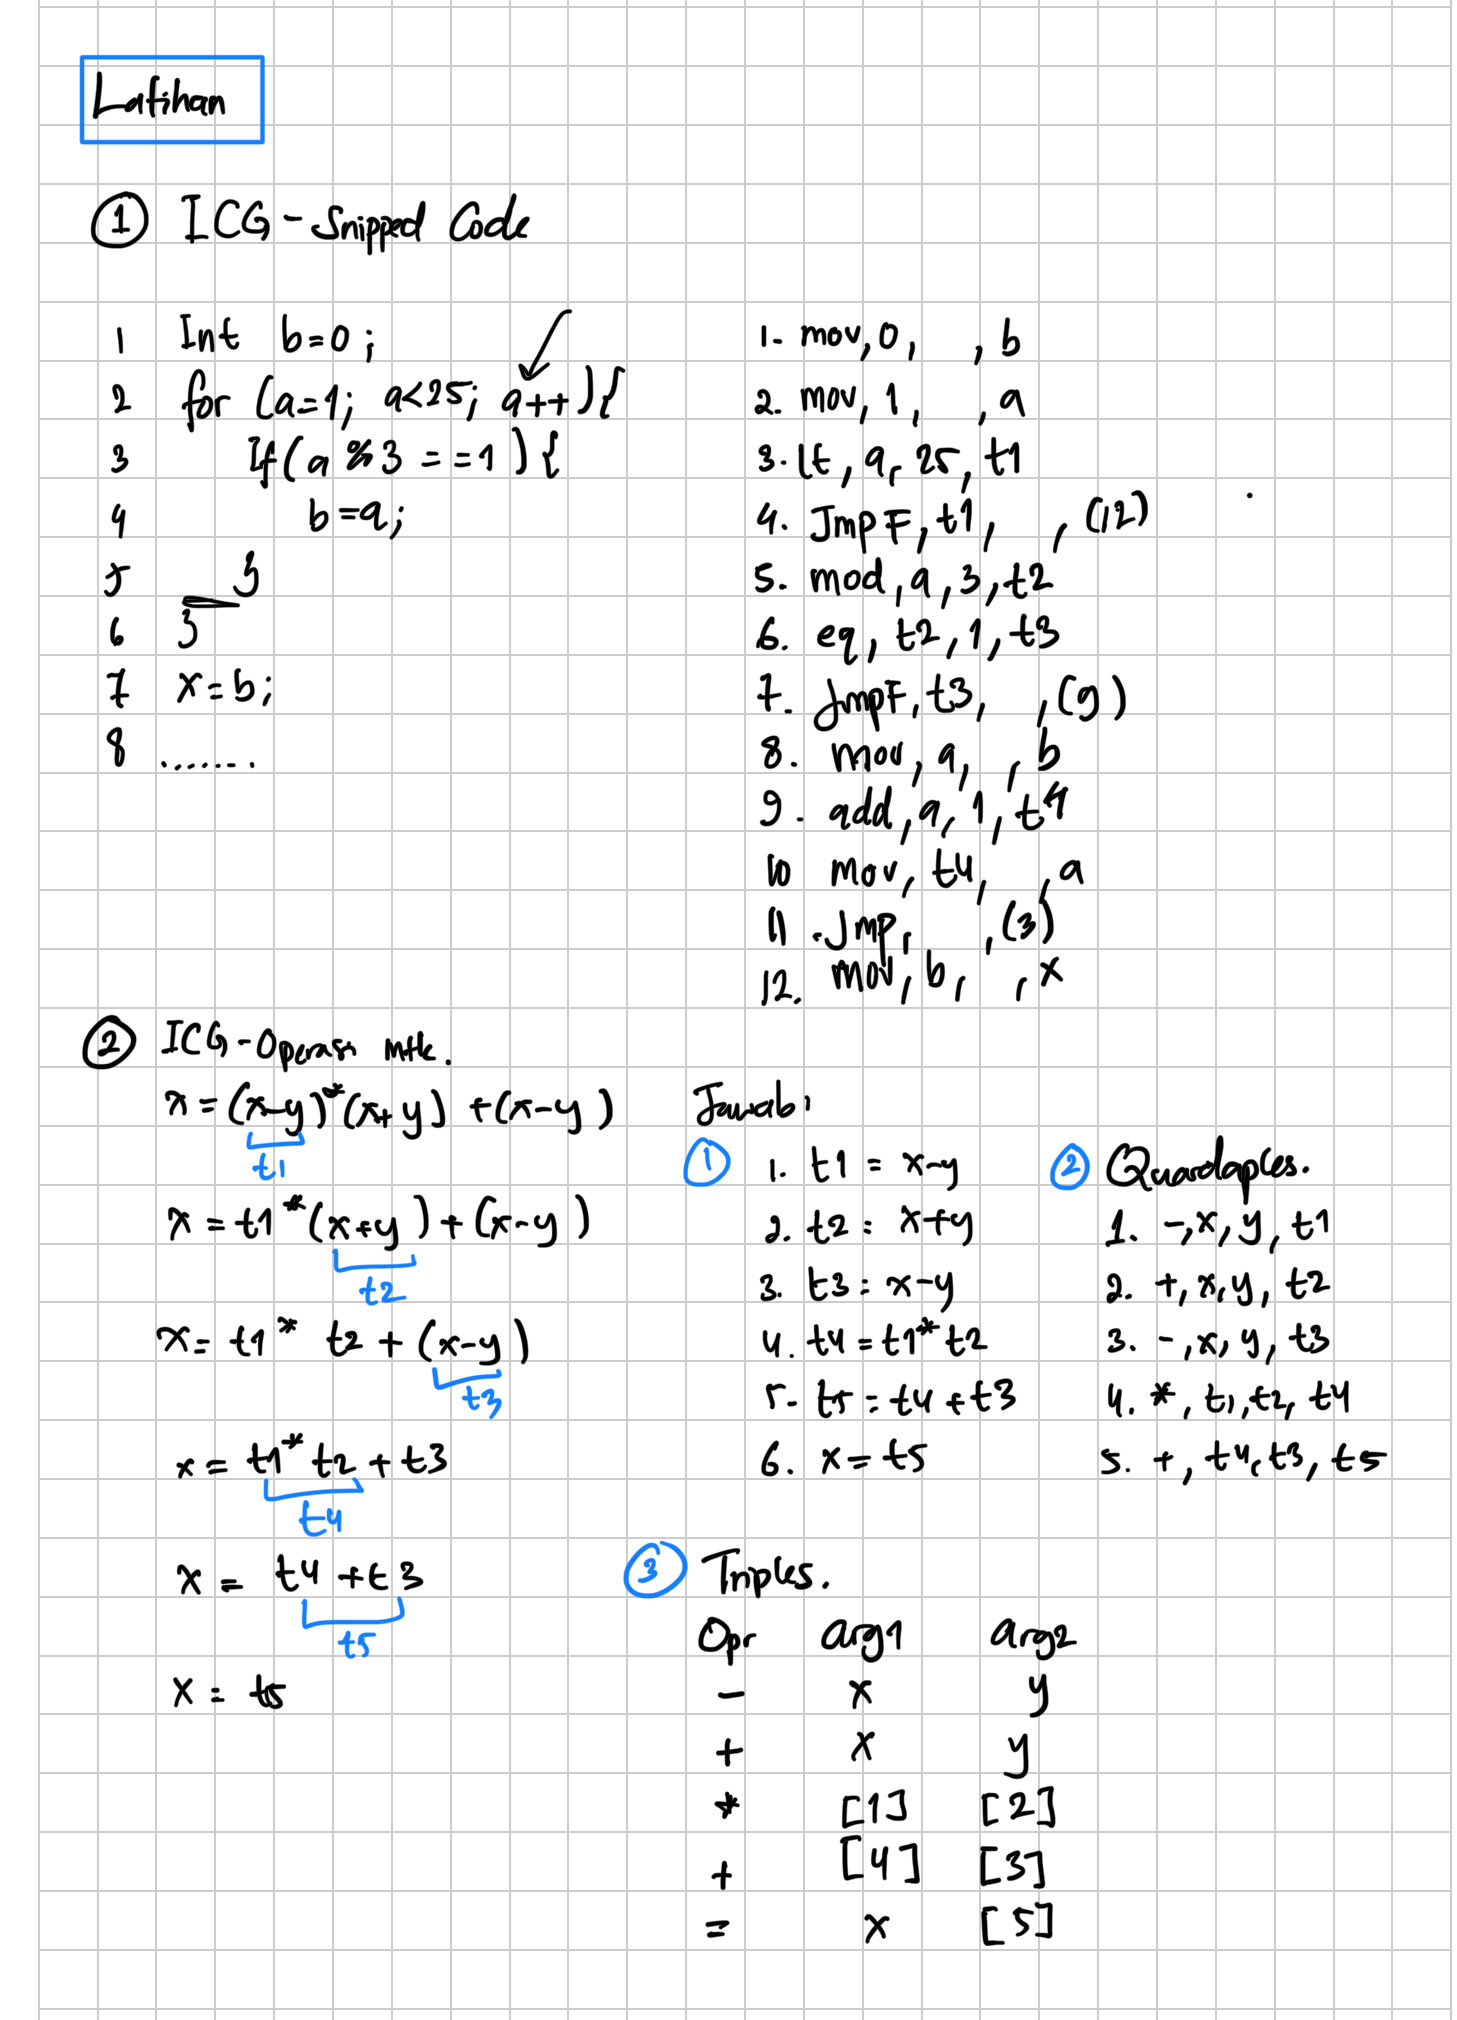 Latihan
① ICG - Snipped Code
1 Int b=0;
2 for (a=1; a<25; a++){
3 If(a%3 ==1){
4 b=a;
5 }
6 }
7 x=b;
8 .......
1. mov,0, ,b
2. mov,1, ,a
3. lt,a,25,t1
4. JmpF,t1, ,(12)
5. mod,a,3,t2
6. eq,t2,1,t3
7. JmpF,t3, ,(9)
8. mov,a, ,b
9. add,a,1,t4
10 mov,t4, ,a
11. Jmp, ,(3)
12. mov,b, ,x
② ICG - Operasi mtk.
x = (x-y)*(x+y) + (x-y)
t1
x = t1*(x+y) + (x-y)
t2
x = t1* t2 + (x-y)
t3
x = t1* t2 + t3
t4
x = t4 + t3
t5
x = t5
Jawab:
①
1. t1 = x-y
2. t2 = x+y
3. t3 = x-y
4. t4 = t1* t2
5. t5 = t4 + t3
6. x = t5
② Quardaples.
1. -,x,y,t1
2. +,x,y,t2
3. -,x,y,t3
4. *,t1,t2,t4
5. +,t4,t3,t5
③ Triples.
Opr arg1 arg2
- x y
+ x y
* [1] [2]
+ [4] [3]
= x [5]